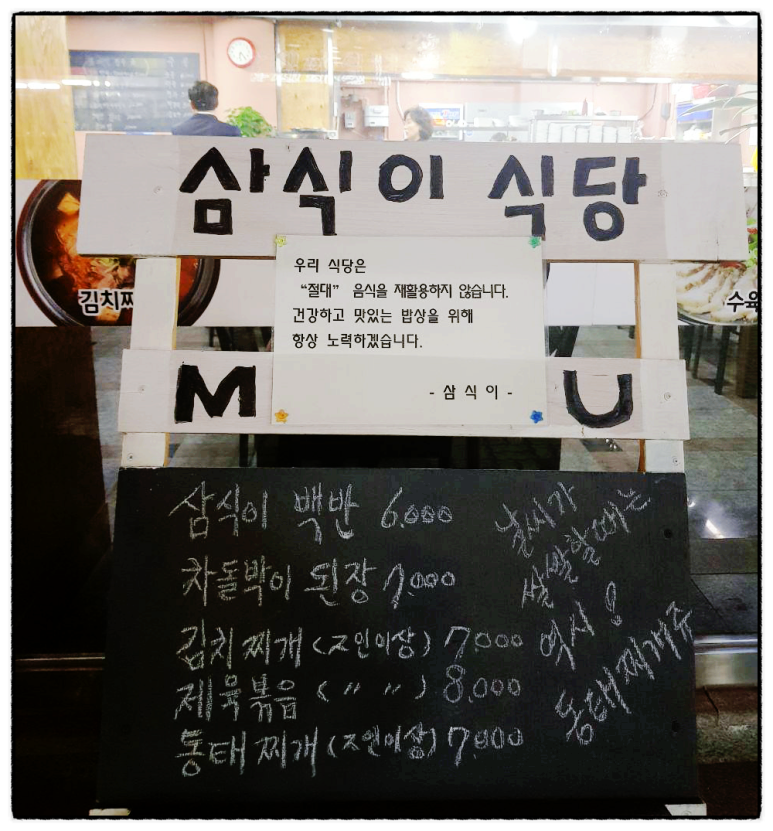 삼식이 식당
김치찌
수육
우리 식당은
"절대" 음식을 재활용하지 않습니다.
건강하고 맛있는 밥상을 위해
항상 노력하겠습니다.
- 삼 식 이 -
M U
삼식이 백반 6.000
차돌박이 된장 7.000
김치찌개 (2인이상) 7000
제육볶음 ( 〃 〃 ) 8.000
동태찌개 (2인이상) 7.000
날씨가
쌀쌀할때는
역시!
동태찌개쥬